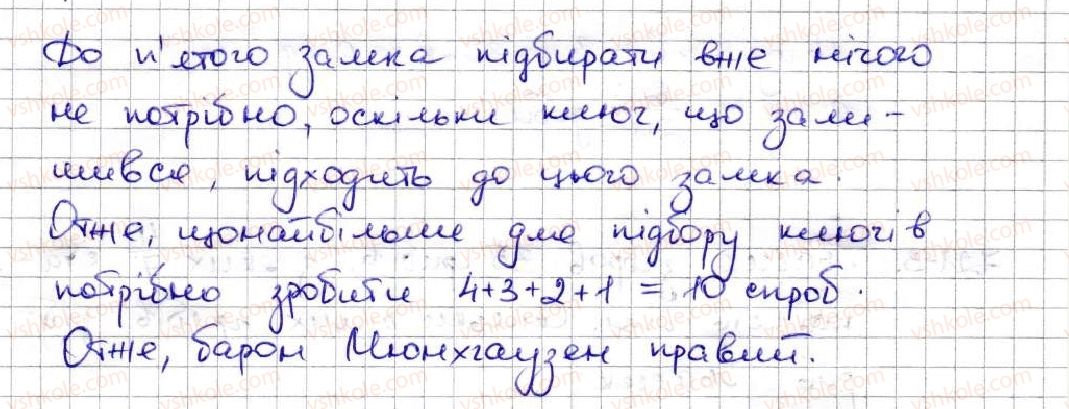 До п'ятого замка підбирати вже нічого
не потрібно, оскільки ключ, що зали-
шився, підходить до цього замка.
Отже, щонайбільше для підбору ключів
потрібно зробити 4+3+2+1=10 спроб.
Отже, барон Мюнхгаузен правий.